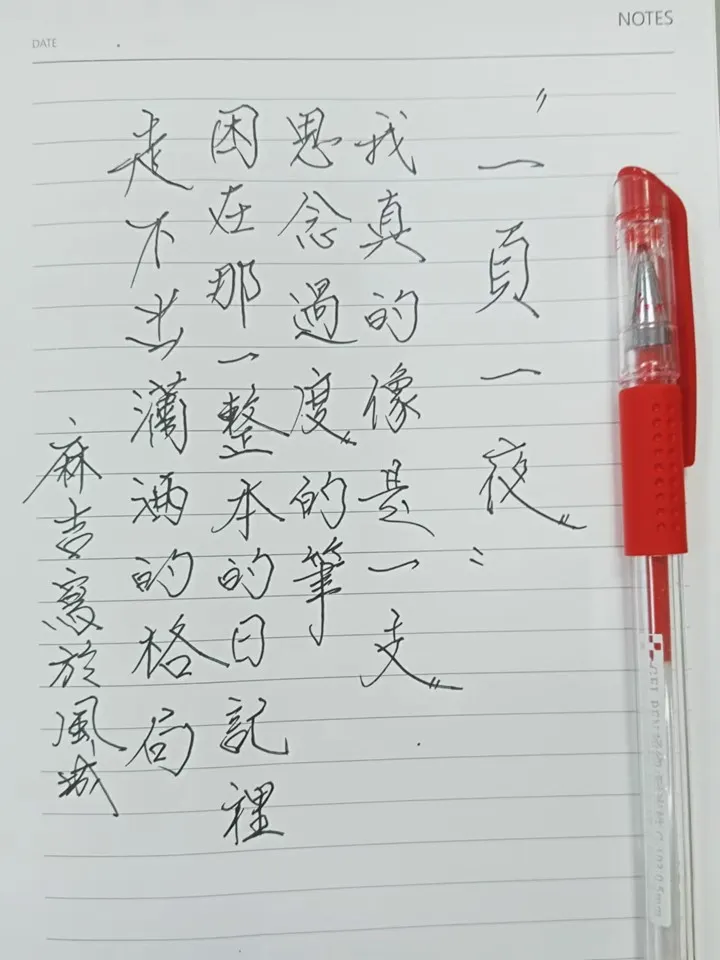 NOTES
DATE
"一頁一夜"
我真的像是一支
思念過度的筆
困在那一整本的日記裡
走不出瀟洒的格局
麻吉寫於風城